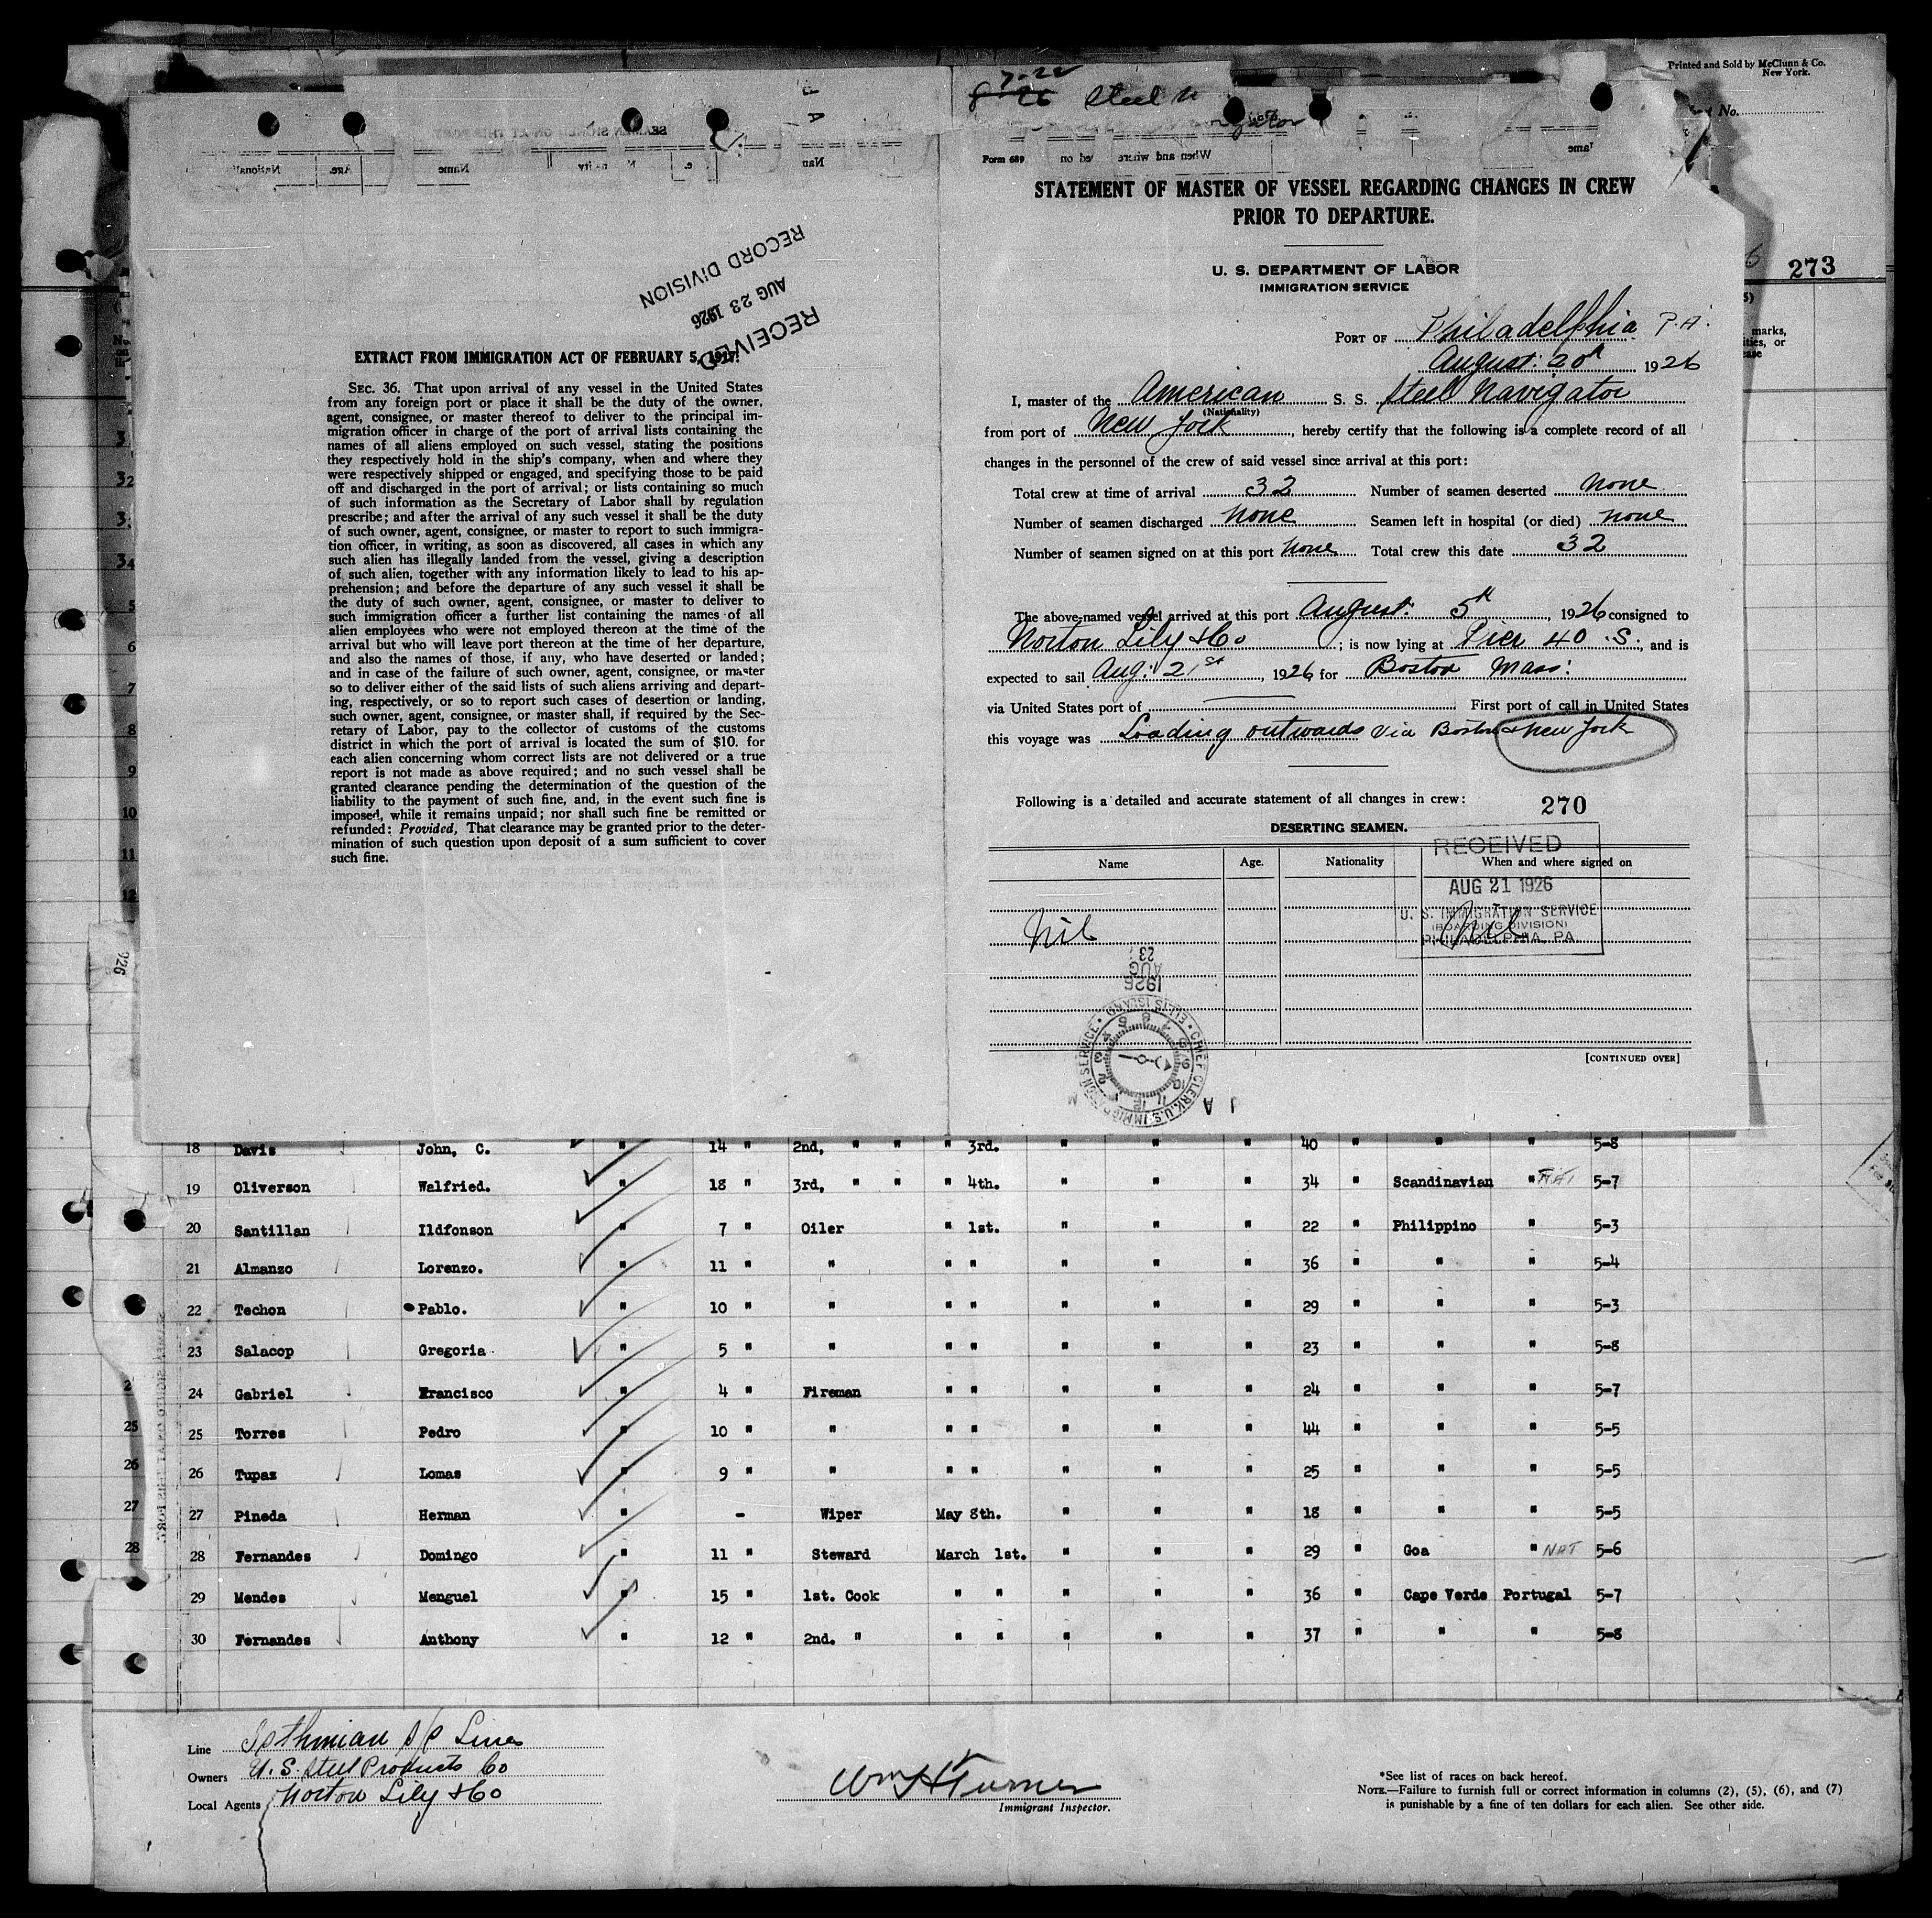 Printed and Sold by McClunn & Co.
New York.
No.
273
marks,
7-22
8 26 Steel N
RECORD DIVISION
AUG 23 1926
RECEIVED
EXTRACT FROM IMMIGRATION ACT OF FEBRUARY 5, 1917.
SEC. 36. That upon arrival of any vessel in the United States
from any foreign port or place it shall be the duty of the owner,
agent, consignee, or master thereof to deliver to the principal im-
migration officer in charge of the port of arrival lists containing the
names of all aliens employed on such vessel, stating the positions
they respectively hold in the ship's company, when and where they
were respectively shipped or engaged, and specifying those to be paid
off and discharged in the port of arrival; or lists containing so much
of such information as the Secretary of Labor shall by regulation
prescribe; and after the arrival of any such vessel it shall be the duty
of such owner, agent, consignee, or master to report to such immigra-
tion officer, in writing, as soon as discovered, all cases in which any
such alien has illegally landed from the vessel, giving a description
of such alien, together with any information likely to lead to his ap-
prehension; and before the departure of any such vessel it shall be
the duty of such owner, agent, consignee, or master to deliver to
such immigration officer a further list containing the names of all
alien employees who were not employed thereon at the time of the
arrival but who will leave port thereon at the time of her departure,
and also the names of those, if any, who have deserted or landed;
and in case of the failure of such owner, agent, consignee, or master
so to deliver either of the said lists of such aliens arriving and depart-
ing, respectively, or so to report such cases of desertion or landing,
such owner, agent, consignee, or master shall, if required by the Sec-
retary of Labor, pay to the collector of customs of the customs
district in which the port of arrival is located the sum of $10. for
each alien concerning whom correct lists are not delivered or a true
report is not made as above required; and no such vessel shall be
granted clearance pending the determination of the question of the
liability to the payment of such fine, and, in the event such fine is
imposed, while it remains unpaid; nor shall such fine be remitted or
refunded: Provided, That clearance may be granted prior to the deter-
mination of such question upon deposit of a sum sufficient to cover
such fine.
Form 689
STATEMENT OF MASTER OF VESSEL REGARDING CHANGES IN CREW
PRIOR TO DEPARTURE.
U. S. DEPARTMENT OF LABOR
IMMIGRATION SERVICE
PORT OF Philadelphia P.A.
August. 20th 1926
I, master of the American S. S. Steel Navigator
(Nationality)
from port of New York, hereby certify that the following is a complete record of all
changes in the personnel of the crew of said vessel since arrival at this port:
Total crew at time of arrival 32 Number of seamen deserted None
Number of seamen discharged None Seamen left in hospital (or died) None
Number of seamen signed on at this port None Total crew this date 32
The above-named vessel arrived at this port August. 5th, 1926 consigned to
Norton Lily & Co; is now lying at Pier 40 S:, and is
expected to sail Aug: 21st, 1926, for Boston Mass:
via United States port of First port of call in United States
this voyage was Loading outwards via Boston & New York
Following is a detailed and accurate statement of all changes in crew: 270
DESERTING SEAMEN.
Name Age. Nationality When and where signed on
RECEIVED
AUG 21 1926
U. S. IMMIGRATION SERVICE
(BOARDING DIVISION)
PHILADELPHIA, PA
Nil Nil
1926 AUG 23
CHIEF CLERK, U.S. IMMIGRATION SERVICE • ELLIS ISLAND •
[CONTINUED OVER]
18 Davis John, C. " 14 " 2nd, " " " 3rd. " " " 40 " " " 5-8
19 Oliverson Walfried. " 18 " 3rd, " " " 4th. " " " 34 " Scandinavian " 5-7
20 Santillan Ildfonson " 7 " Oiler " 1st. " " " 22 " Philippino " 5-3
21 Almanzo Lorenzo. " 11 " " " " " " " 36 " " " 5-4
22 Techon Pablo. " 10 " " " " " " " 29 " " " 5-3
23 Salacop Gregoria " 5 " " " " " " " 23 " " " 5-8
24 Gabriel Francisco " 4 " Fireman " " " " " 24 " " " 5-7
25 Torres Pedro " 10 " " " " " " " 44 " " " 5-5
26 Tupaz Lomas " 9 " " " " " " " 25 " " " 5-5
27 Pineda Herman " - Wiper May 8th. " " " 18 " " " 5-5
28 Fernandes Domingo " 11 " Steward March 1st. " " " 29 " Goa " NAT 5-6
29 Mendes Menguel " 15 " 1st. Cook " " " " " 36 " Cape Verde Portugal 5-7
30 Fernandes Anthony " 12 " 2nd. " " " " " " 37 " " " 5-8
Line Isthmian S/S Lines
Owners U. S. Steel Products Co
Local Agents Norton Lily & Co
Wm H Turner
Immigrant Inspector.
*See list of races on back hereof.
NOTE.—Failure to furnish full or correct information in columns (2), (5), (6), and (7)
is punishable by a fine of ten dollars for each alien. See other side.